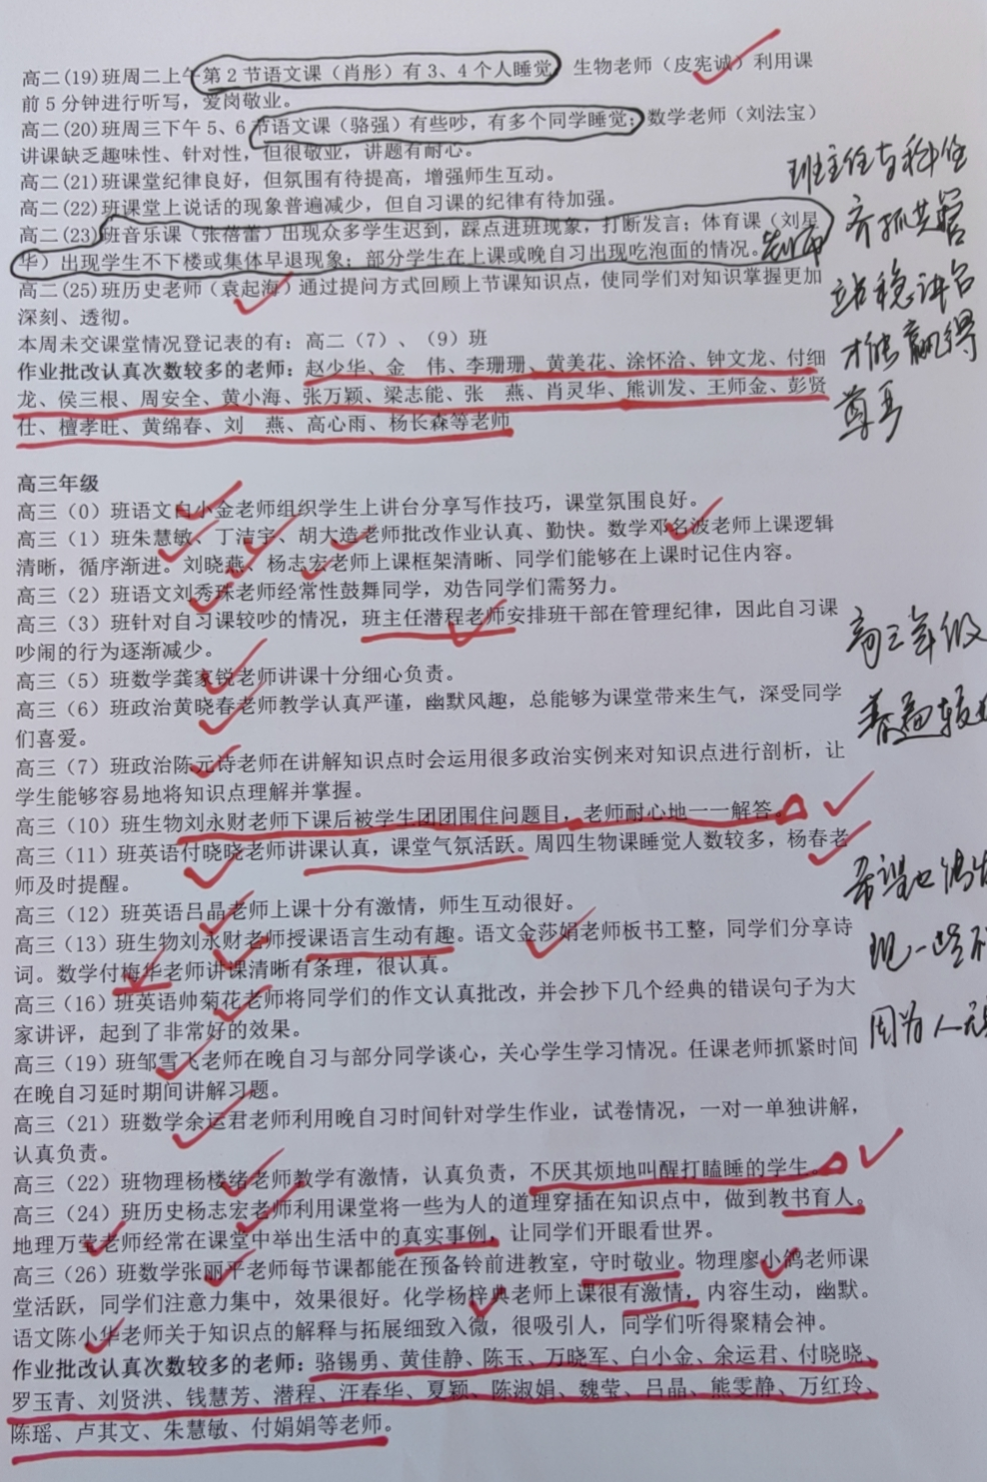 高二(19)班周二上午第2节语文课（肖彤）有3、4个人睡觉 生物老师（皮宪诚）利用课
前5分钟进行听写，爱岗敬业。
高二(20)班周三下午5、6节语文课（骆强）有些吵，有多个同学睡觉；数学老师（刘法宝）
讲课缺乏趣味性、针对性，但很敬业，讲题有耐心。
高二(21)班课堂纪律良好，但氛围有待提高，增强师生互动。
高二(22)班课堂上说话的现象普遍减少，但自习课的纪律有待加强。
高二(23)班音乐课（张蓓蕾）出现众多学生迟到，踩点进班现象，打断发言；体育课（刘星
华）出现学生不下楼或集体早退现象；部分学生在上课或晚自习出现吃泡面的情况。
高二(25)班历史老师（袁起海）通过提问方式回顾上节课知识点，使同学们对知识掌握更加
深刻、透彻。
本周未交课堂情况登记表的有：高二（7）、（9）班
作业批改认真次数较多的老师：赵少华、金　伟、李珊珊、黄美花、涂怀洽、钟文龙、付细
龙、侯三根、周安全、黄小海、张万颖、梁志能、张　燕、肖灵华、熊训发、王师金、彭贤
仕、檀孝旺、黄绵春、刘　燕、高心雨、杨长森等老师
班主任与科任
齐抓共管
站稳讲台
才能赢得
尊重
高三年级
高三（0）班语文白小金老师组织学生上讲台分享写作技巧，课堂氛围良好。
高三（1）班朱慧敏、丁洁宇、胡大造老师批改作业认真、勤快。数学邓名波老师上课逻辑
清晰，循序渐进。刘晓燕、杨志宏老师上课框架清晰、同学们能够在上课时记住内容。
高三（2）班语文刘秀珠老师经常性鼓舞同学，劝告同学们需努力。
高三（3）班针对自习课较吵的情况，班主任潜程老师安排班干部在管理纪律，因此自习课
吵闹的行为逐渐减少。
高三（5）班数学龚家锐老师讲课十分细心负责。
高三（6）班政治黄晓春老师教学认真严谨，幽默风趣，总能够为课堂带来生气，深受同学
们喜爱。
高三（7）班政治陈元诗老师在讲解知识点时会运用很多政治实例来对知识点进行剖析，让
学生能够容易地将知识点理解并掌握。
高三（10）班生物刘永财老师下课后被学生团团围住问题目，老师耐心地一一解答。
高三（11）班英语付晓晓老师讲课认真，课堂气氛活跃。周四生物课睡觉人数较多，杨春老
师及时提醒。
高三（12）班英语吕晶老师上课十分有激情，师生互动很好。
高三（13）班生物刘永财老师授课语言生动有趣。语文金莎娟老师板书工整，同学们分享诗
词。数学付梅华老师讲课清晰有条理，很认真。
高三（16）班英语帅菊花老师将同学们的作文认真批改，并会抄下几个经典的错误句子为大
家讲评，起到了非常好的效果。
高三（19）班邹雪飞老师在晚自习与部分同学谈心，关心学生学习情况。任课老师抓紧时间
在晚自习延时期间讲解习题。
高三（21）班数学余运君老师利用晚自习时间针对学生作业，试卷情况，一对一单独讲解，
认真负责。
高三（22）班物理杨楼绪老师教学有激情，认真负责，不厌其烦地叫醒打瞌睡的学生。
高三（24）班历史杨志宏老师利用课堂将一些为人的道理穿插在知识点中，做到教书育人。
地理万莹老师经常在课堂中举出生活中的真实事例，让同学们开眼看世界。
高三（26）班数学张丽平老师每节课都能在预备铃前进教室，守时敬业。物理廖小鸽老师课
堂活跃，同学们注意力集中，效果很好。化学杨梓典老师上课很有激情，内容生动，幽默。
语文陈小华老师关于知识点的解释与拓展细致入微，很吸引人，同学们听得聚精会神。
作业批改认真次数较多的老师：骆锡勇、黄佳静、陈玉、万晓军、白小金、余运君、付晓晓、
罗玉青、刘贤洪、钱慧芳、潜程、汪春华、夏颖、陈淑娟、魏莹、吕晶、熊雯静、万红玲、
陈瑶、卢其文、朱慧敏、付娟娟等老师。
高三年级
普遍较
希望也
现一些不
因为人无